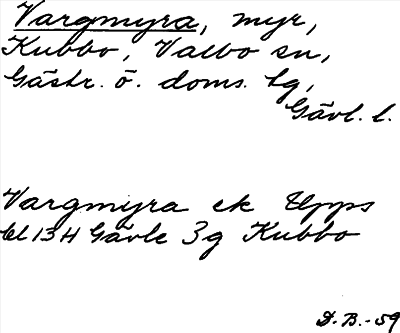 Vargmyra, myr,
Kubbo, Valbo sn,
Gästr. ö. doms. tg,
Gävl. l.
Vargmyra ek Upps
bl 13H Gävle 3g Kubbo
D. B. - 59